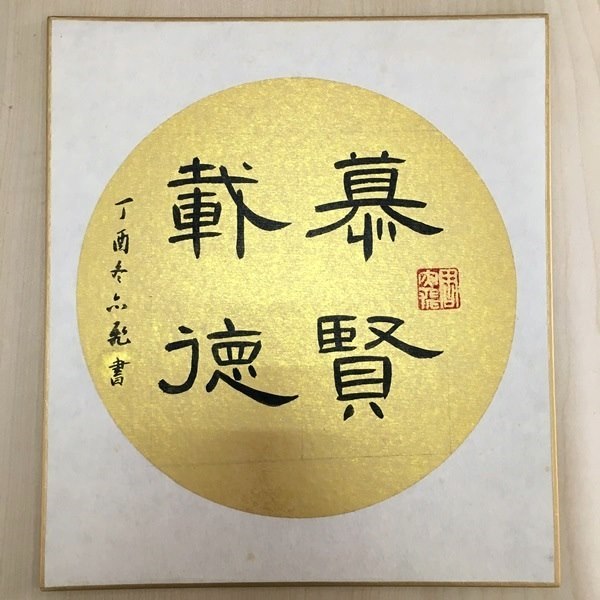 慕賢
載德
丁酉冬
書